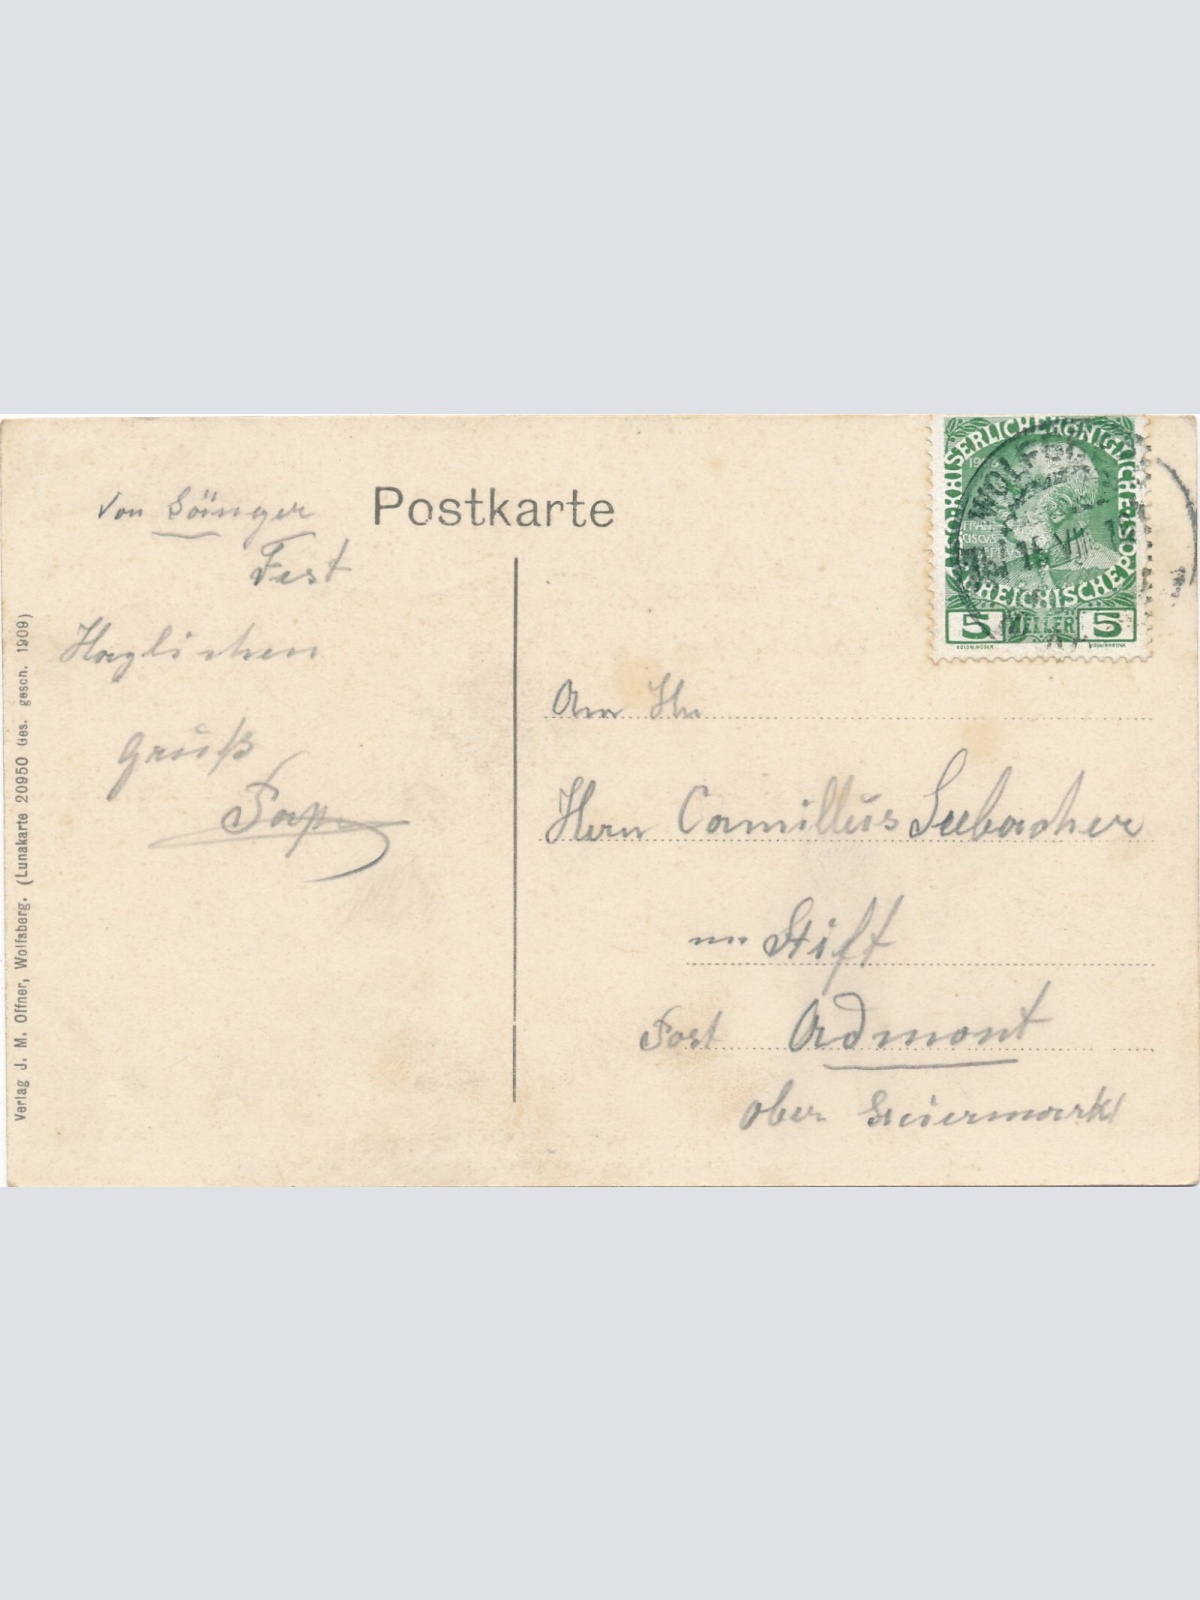 Postkarte
von Sänger
Fest
Herzlichen
Gruß
KAISERLICHEKÖNIGLICHE
ÖSTERREICHISCHE POST
FRAN
CISCUS
5 HELLER 5
WOLFSB
An
Herrn Camillus Seebacher
im Stift
Post Admont
Ober Steiermark
Verlag J. M. Offner, Wolfsberg. (Lunakarte 20950 Ges. gesch. 1909)